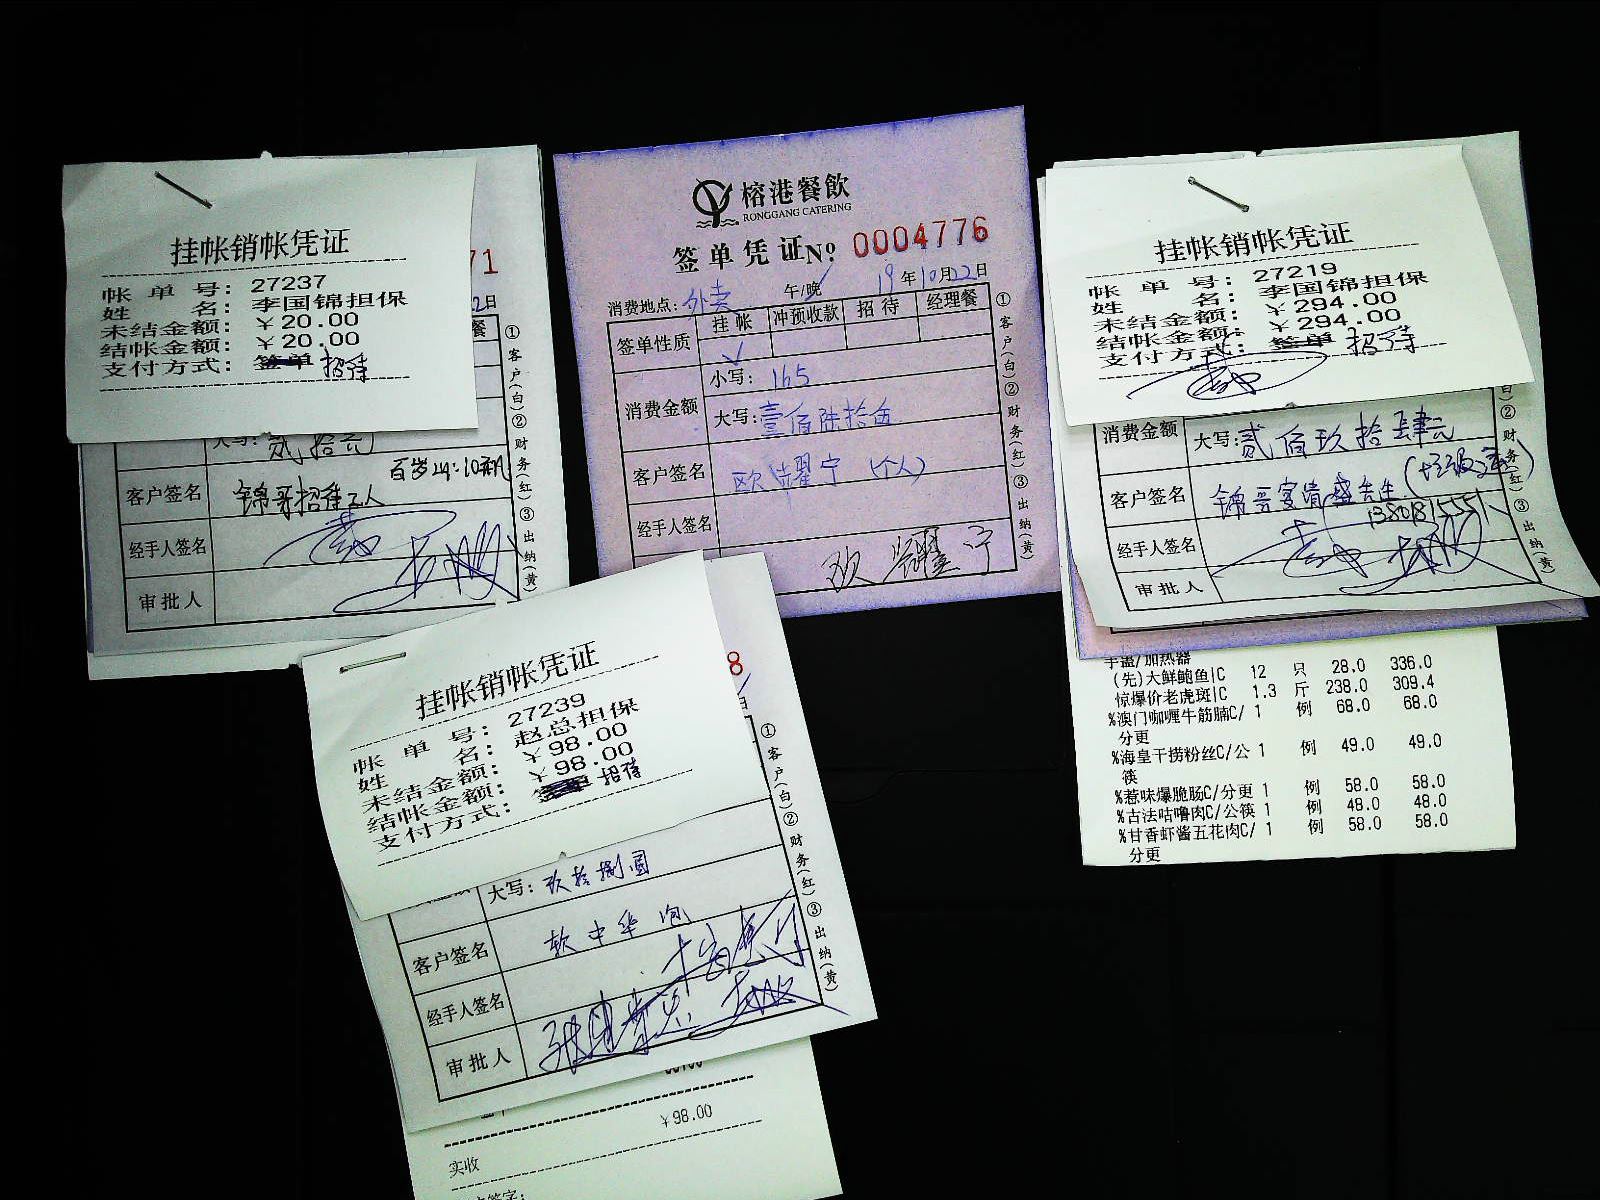 挂帐销帐凭证
帐单号：27237
姓名：李国锦担保
未结金额：￥20.00
结帐金额：￥20.00
支付方式：签单 招待
71
2日
餐
大写：贰拾元
客户签名 锦哥招待工人
经手人签名
审批人
①客户(白)②财务(红)③出纳(黄)
榕港餐飲
RONGGANG CATERING
签单凭证№ 0004776
消费地点：外卖 午/晚 19年10月22日
签单性质 挂帐 冲预收款 招待 经理餐
消费金额 小写：165
大写：壹佰陆拾伍
客户签名 欧耀宁（个人）
经手人签名
欧耀宁
①客户(白)②财务(红)③出纳(黄)
挂帐销帐凭证
帐单号：27219
姓名：李国锦担保
未结金额：￥294.00
结帐金额：￥294.00
支付方式：签单 招待
消费金额 大写：贰佰玖拾肆元
客户签名
经手人签名
审批人
②财务(红)③出纳(黄)
手盅/加热器
(先)大鲜鲍鱼|C 12 只 28.0 336.0
惊爆价老虎斑|C 1.3 斤 238.0 309.4
%澳门咖喱牛筋腩C/ 1 例 68.0 68.0
分更
%海皇干捞粉丝C/公 1 例 49.0 49.0
筷
%惹味爆脆肠C/分更 1 例 58.0 58.0
%古法咕噜肉C/公筷 1 例 48.0 48.0
%甘香虾酱五花肉C/ 1 例 58.0 58.0
分更
挂帐销帐凭证
帐单号：27239
姓名：赵总担保
未结金额：￥98.00
结帐金额：￥98.00
支付方式：签单 招待
8
日
大写：玖拾捌圆
客户签名 软中华
经手人签名
审批人
①客户(白)②财务(红)③出纳(黄)
￥98.00
实收